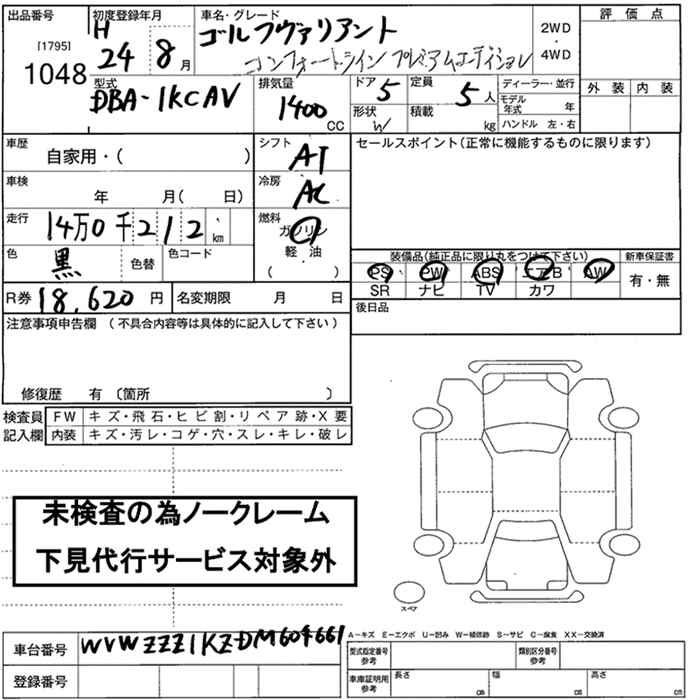 出品番号
[1795]
1048
初度登録年月
H
24 8 月
車名・グレード
ゴルフヴァリアント
コンフォートライン プレミアムエディション
2WD
・
4WD
評価点
外装 内装
型式
DBA-1KCAV
排気量
1400
CC
ドア 5
形状 W
定員
5 人
積載
kg
ディーラー・並行
モデル年式 年
ハンドル 左・右
車歴
自家用・( )
シフト
AT
セールスポイント(正常に機能するものに限ります)
車検
年 月( 日)
冷房
AC
走行
14万0千212 km
燃料
ガソリン
軽・油
( )
色
黒
色替
色コード
装備品(純正品に限り丸をつけて下さい)
新車保証書
PS PW ABS エアB AW
SR ナビ TV カワ
有・無
R券 18,620 円
名変期限 月 日
後日品
注意事項申告欄 (不具合内容等は具体的に記入して下さい)
修復歴 有 〔箇所 〕
検査員
記入欄
FW キズ・飛石・ヒビ割・リペア跡・X要
内装 キズ・汚レ・コゲ・穴・スレ・キレ・破レ
未検査の為ノークレーム
下見代行サービス対象外
スペア
A-キズ E-エクボ U-凹み W-補修跡 S-サビ C-腐食 XX-交換済
車台番号
WVWZZZ1KZDM604661
登録番号
型式指定番号
参考
類別区分番号
参考
車庫証明用
参考
長さ
cm
幅
cm
高さ
cm